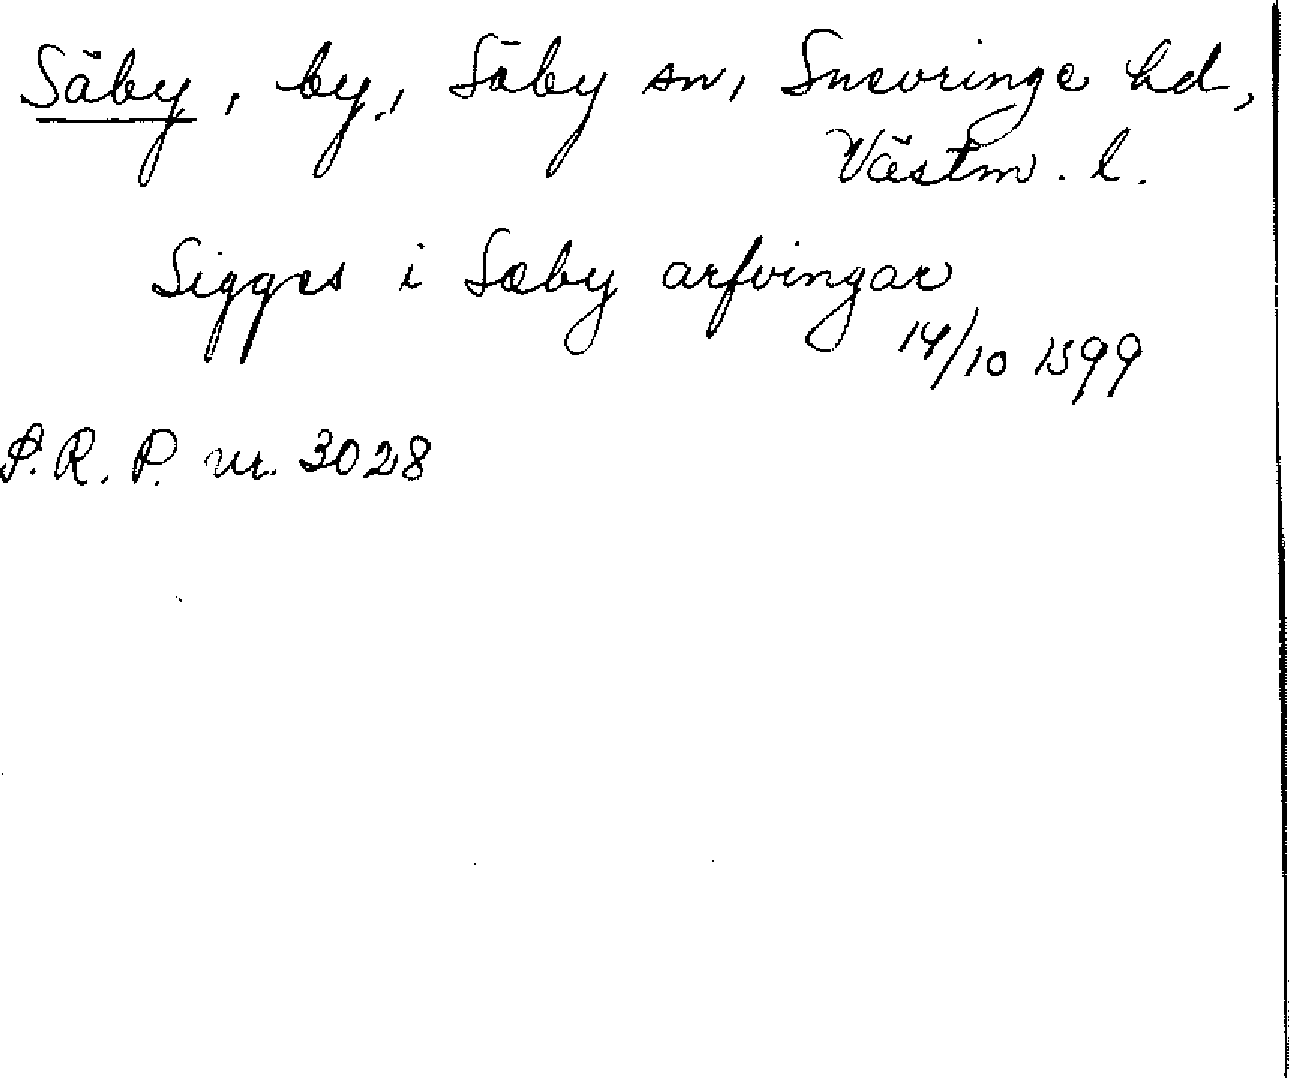 Säby, by, Säby sn, Snevringe hd,
Västm. l.
Sigges i Sæby arfvingar
14/10 1399
S.R.P. nr. 3028